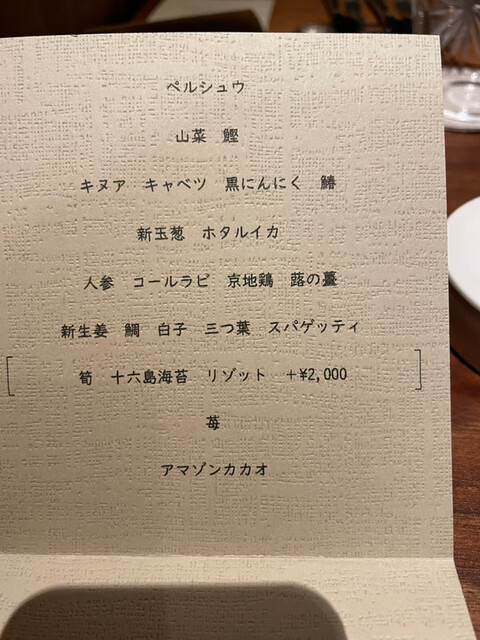 ペルシュウ
山菜 鰹
キヌア キャベツ 黒にんにく 鰆
新玉葱 ホタルイカ
人参 コールラビ 京地鶏 蕗の薹
新生姜 鯛 白子 三つ葉 スパゲッティ
[ 筍 十六島海苔 リゾット +¥2,000 ]
苺
アマゾンカカオ